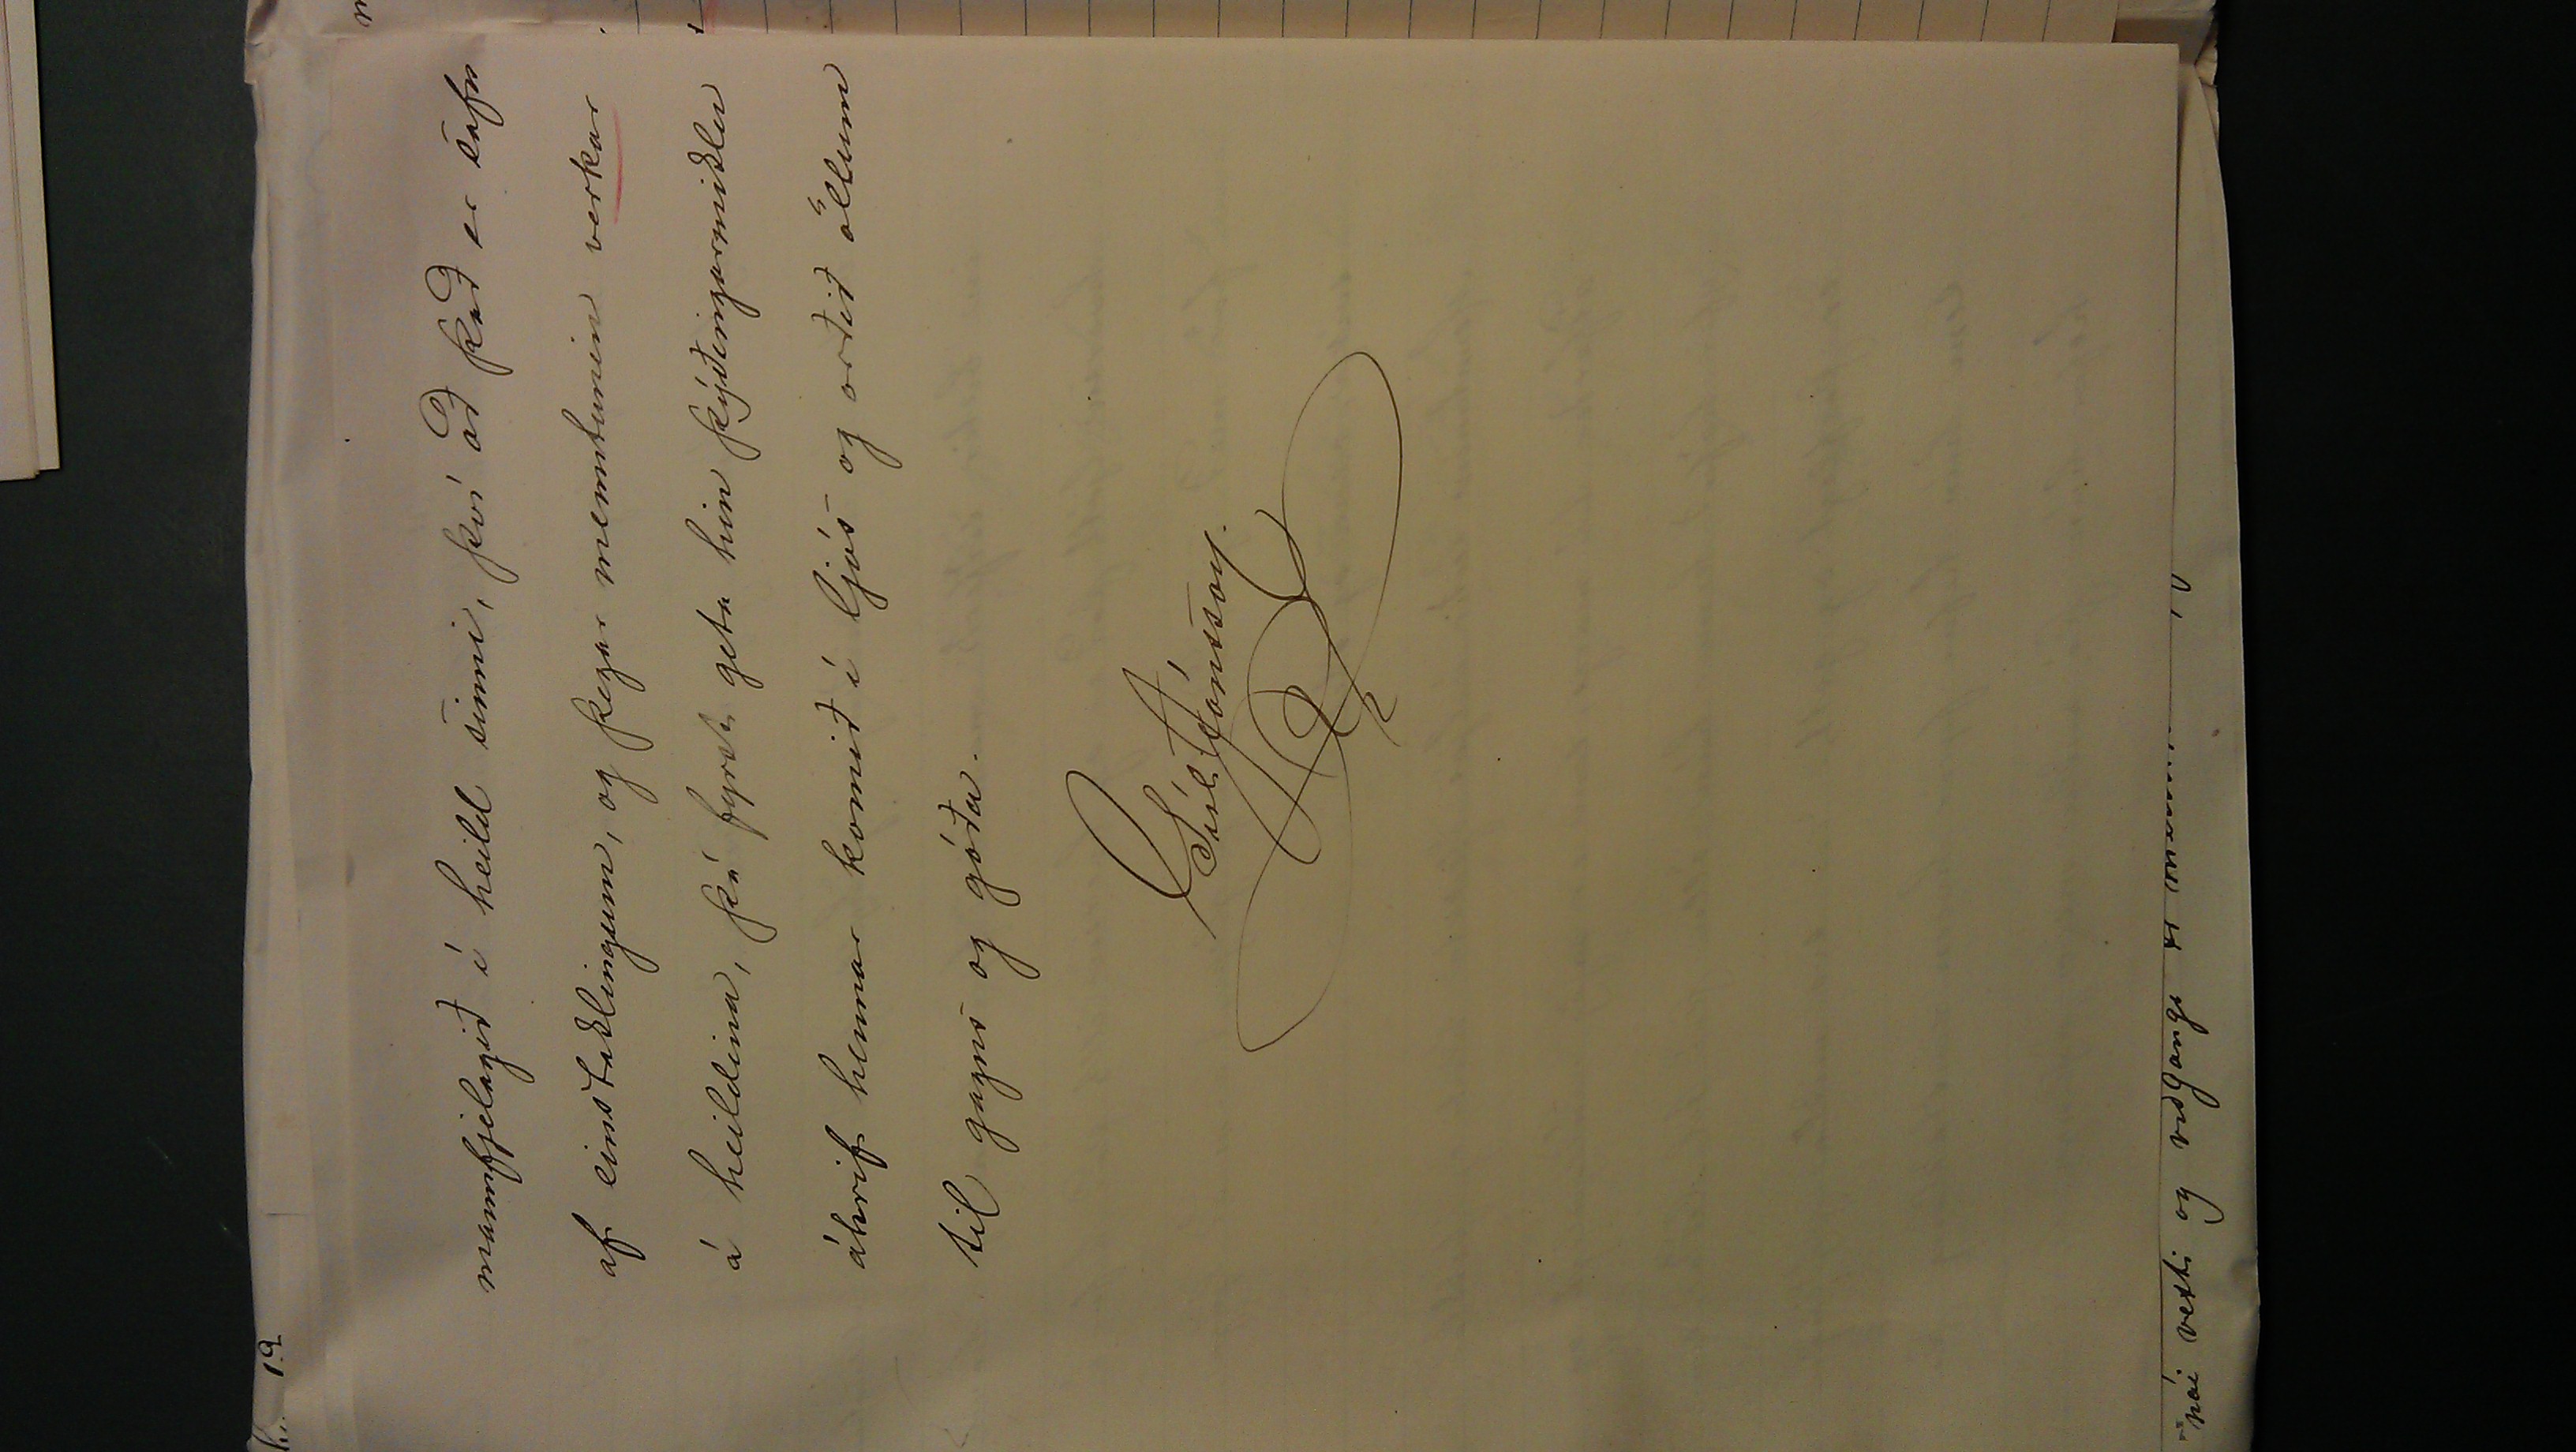 mannfjelagið í heild sinni, því að það er safn
af einstaklingum, og þegar menntunin verkar
á heildina, þá fyrst geta hin þýðingarmiklu
áhrif hennar komið í ljós og orðið öllum
til gagns og góða.
Páll Jónsson.
nái vexti og viðgangi
19